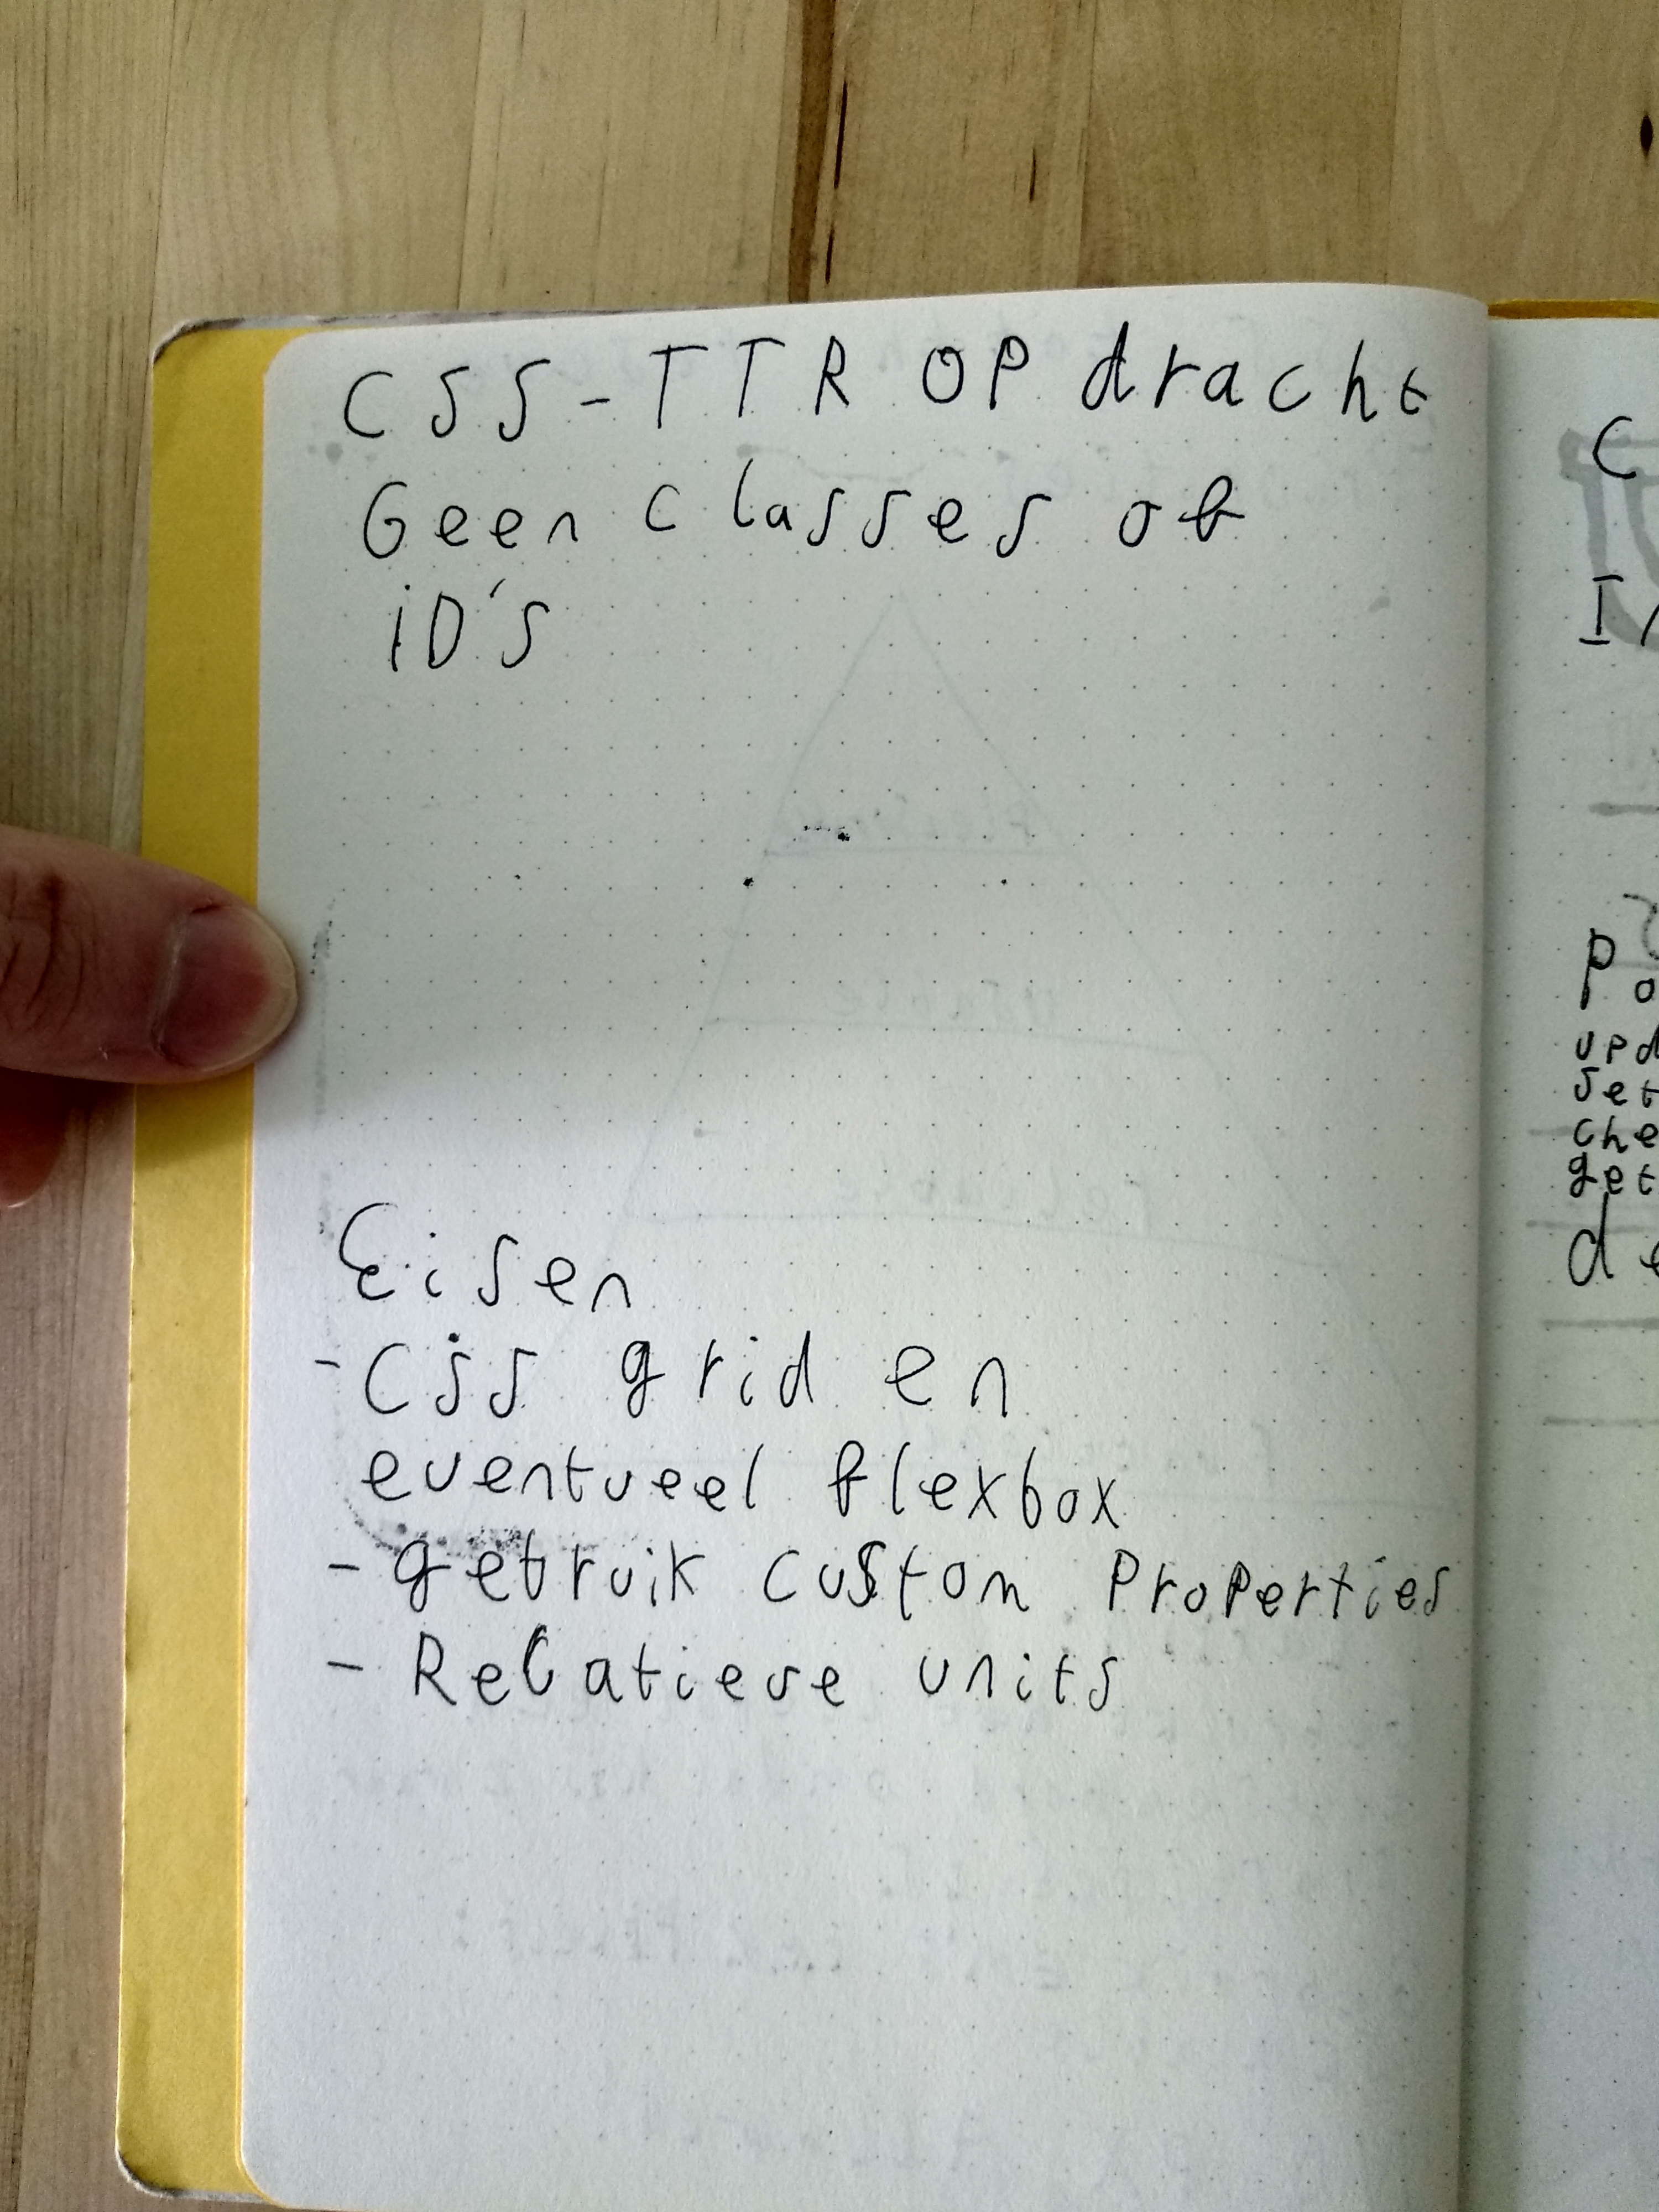 CSS-TTR OPdracht
Geen classes of
iD's
Eisen
- Css grid en
eventueel flexbox
- gebruik custom Properties
- Relatieve units
C
Po
upd
set
che
get
de